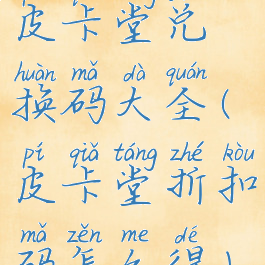 皮卡堂兑
huàn mǎ dà quán
换码大全(
pí qiǎ táng zhé kòu
皮卡堂折扣
mǎ zěn me dé
码怎么得)